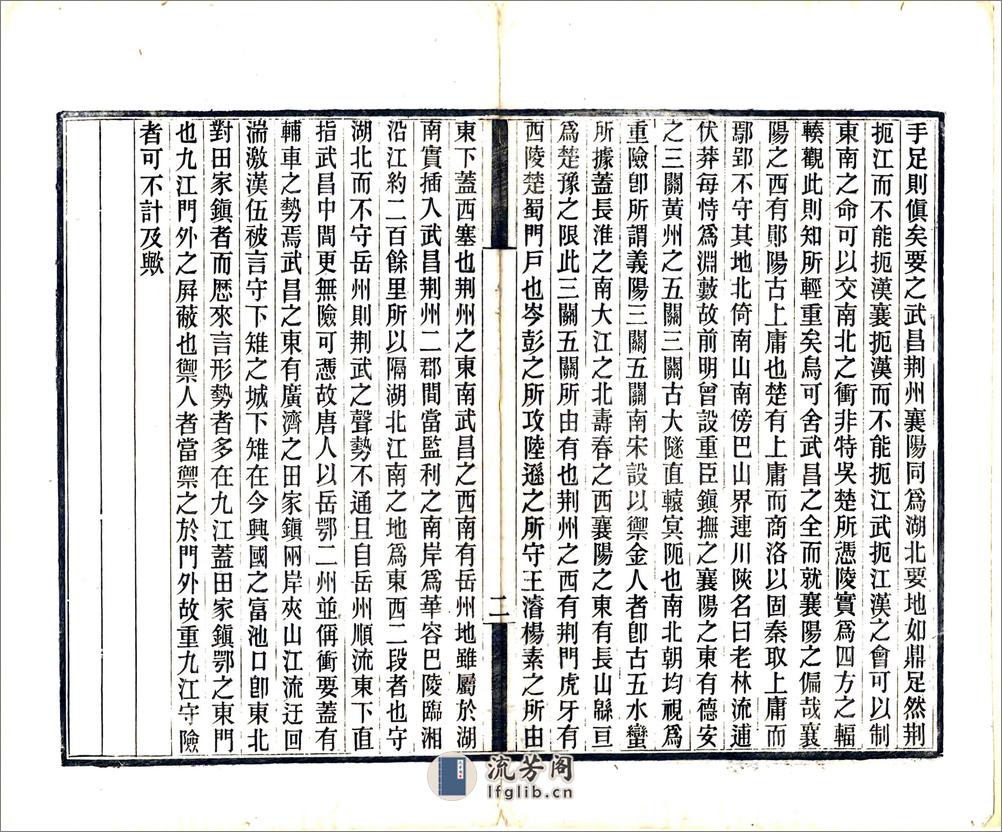 手足則僨矣要之武昌荆州襄陽同爲湖北要地如鼎足然荆
扼江而不能扼漢襄扼漢而不能扼江武扼江漢之會可以制
東南之命可以交南北之衝非特吳楚所憑陵實爲四方之輻
輳觀此則知所輕重矣烏可舍武昌之全而就襄陽之偏哉襄
陽之西有鄖陽古上庸也楚有上庸而商洛以固秦取上庸而
鄢郢不守其地北倚南山南傍巴山界連川陝名曰老林流逋
伏莽每恃爲淵藪故前明曾設重臣鎭撫之襄陽之東有德安
之三關黃州之五關三關古大隧直轅冥阨也南北朝均視爲
重險卽所謂義陽三關五關南宋設以禦金人者卽古五水蠻
所據蓋長淮之南大江之北壽春之西襄陽之東有長山緜亘
爲楚豫之限此三關五關所由有也荆州之西有荆門虎牙有
西陵楚蜀門戸也岑彭之所攻陸遜之所守王濬楊素之所由
二
東下蓋西塞也荆州之東南武昌之西南有岳州地雖屬於湖
南實插入武昌荆州二郡間當監利之南岸爲華容巴陵臨湘
沿江約二百餘里所以隔湖北江南之地爲東西二段者也守
湖北而不守岳州則荆武之聲勢不通且自岳州順流東下直
指武昌中間更無險可憑故唐人以岳鄂二州並偁衝要蓋有
輔車之勢焉武昌之東有廣濟之田家鎭兩岸夾山江流迂回
湍激漢伍被言守下雉之城下雉在今興國之富池口卽東北
對田家鎭者而歷來言形勢者多在九江蓋田家鎭鄂之東門
也九江門外之屏蔽也禦人者當禦之於門外故重九江守險
者可不計及歟
流芳阁
lfglib.cn